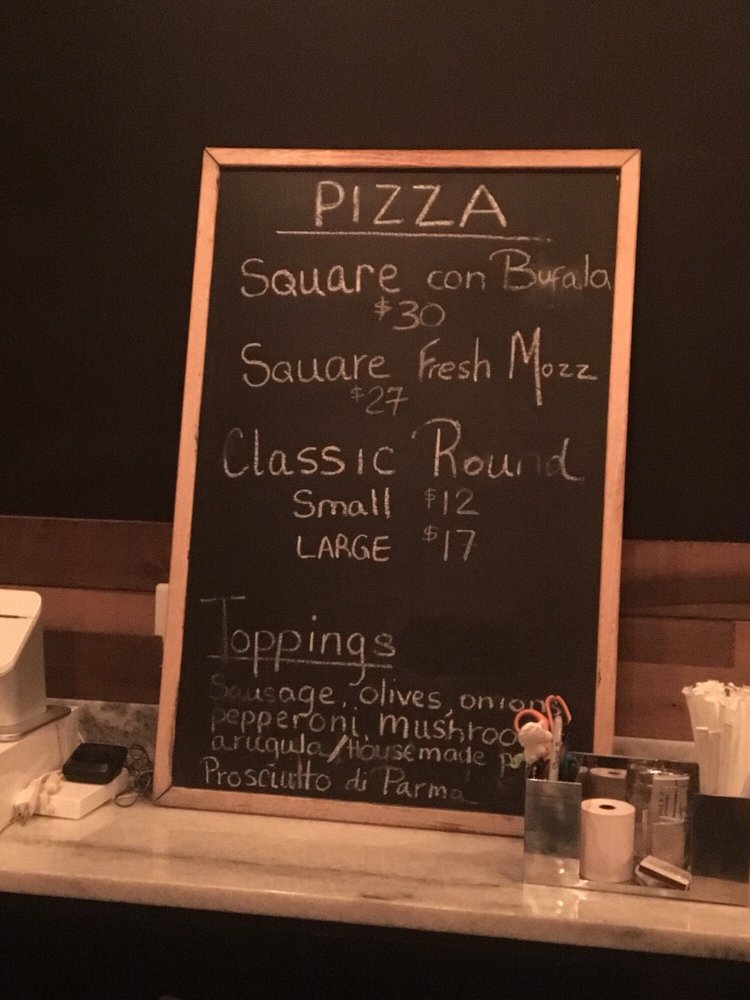 PIZZA
Square con Bufala
$30
Square Fresh Mozz
$27
Classic Round
Small $12
LARGE $17
Toppings
Sausage, olives, onion
pepperoni, mushroo
arugula/Housemade p
Prosciutto di Parma